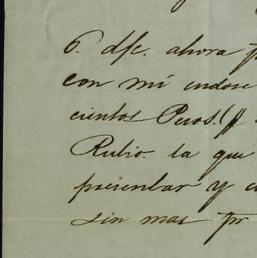 6. dfe. ahora
con mi endose
cientos Pesos. ($
Rubio. la que
presentar y
sin mas pr